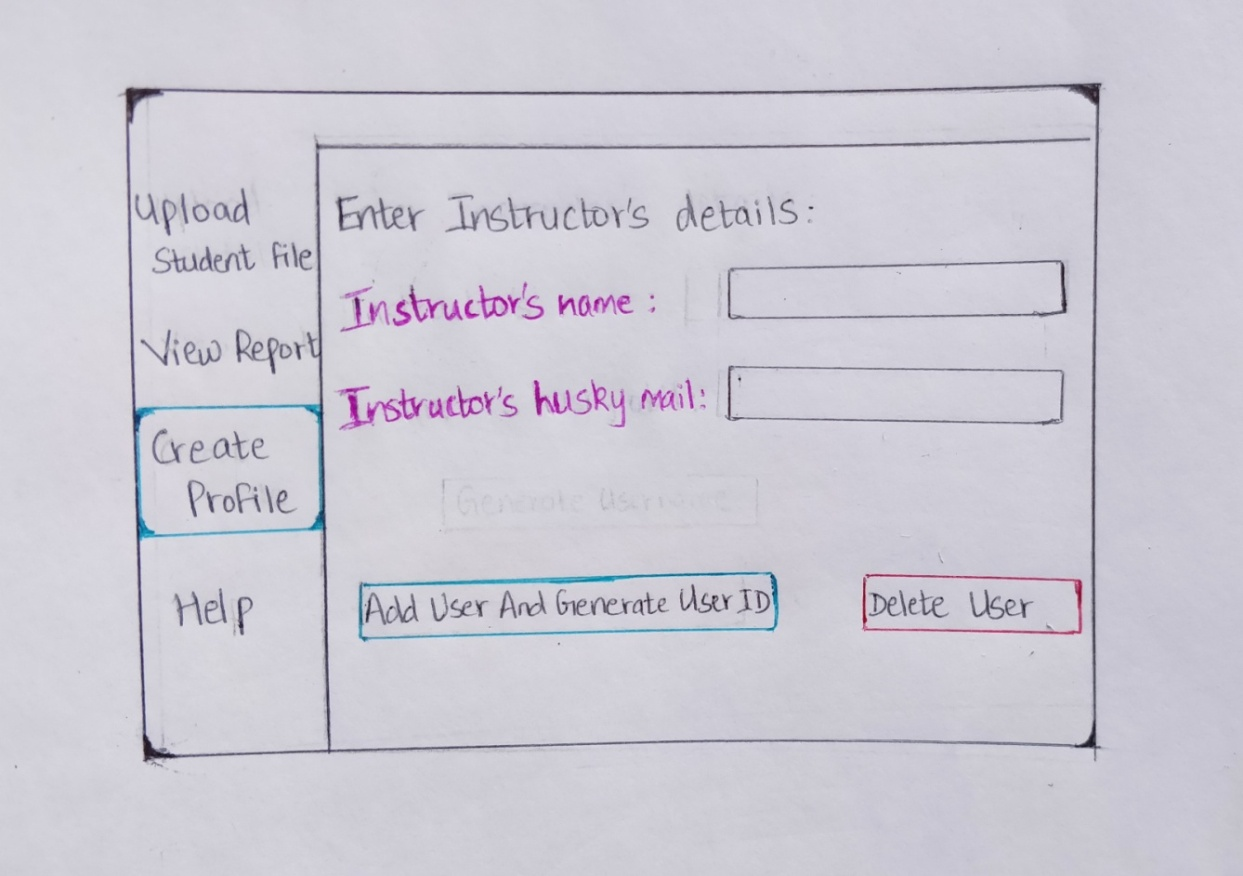 Upload
Student File
View Report
Create
Profile
Help
Enter Instructor's details:
Instructor's name :
Instructor's husky mail:
Generate Username
Add User And Generate User ID
Delete User